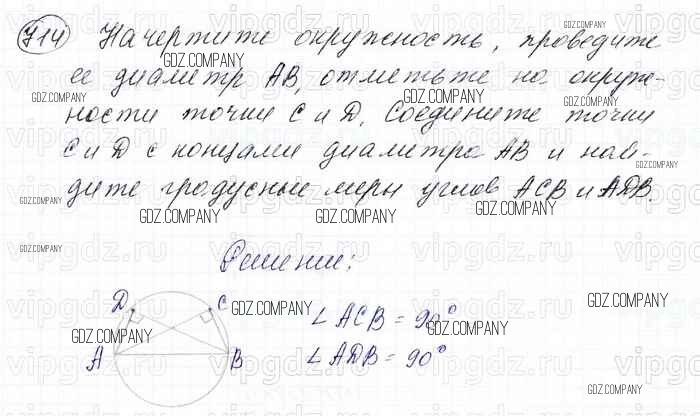 714 Начертите окружность, проведите
ее диаметр АВ, отметьте на окруж-
ности точки С и D. Соедините точки
С и D с концами диаметра АВ и най-
дите градусные меры углов АСВ и АDВ.
Решение:
D C
A B
∠ АСВ = 90°
∠ АDВ = 90°
GDZ.COMPANY
vipgdz.ru